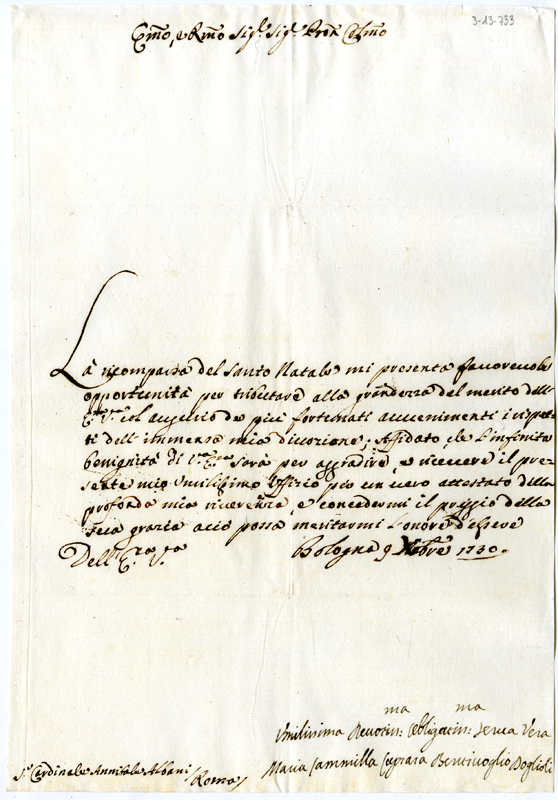 3-13-733
Emo, e Rmo Sigr. Sigr. Pron Colmo
La ricomparsa del Santo Natale mi presenta favorevole
opportunità per tributare alla grandezza del merito dell'
Ema Va col augurio de più fortunati avvenimenti i rispet-
ti dell'immensa mia divozione; Affidato, che l'infinita
benignità di Va Ema sarà per aggradire, e ricevere il pre-
sente mio Umilissimo Uffizio per un vero attestato della
profonda mia riverenza, e concedermi il preggio della
sua grazia acciò possa meritarmi l'onore d'essere
Dell' Ema Va
Bologna 9 Xbre 1730.
Umilissima Devotin:ma Obligatin:ma Serva Vera
Maria Cammilla Caprara Bentivoglio Doglioli
Sr. Cardinale Annibale Albani / Roma /